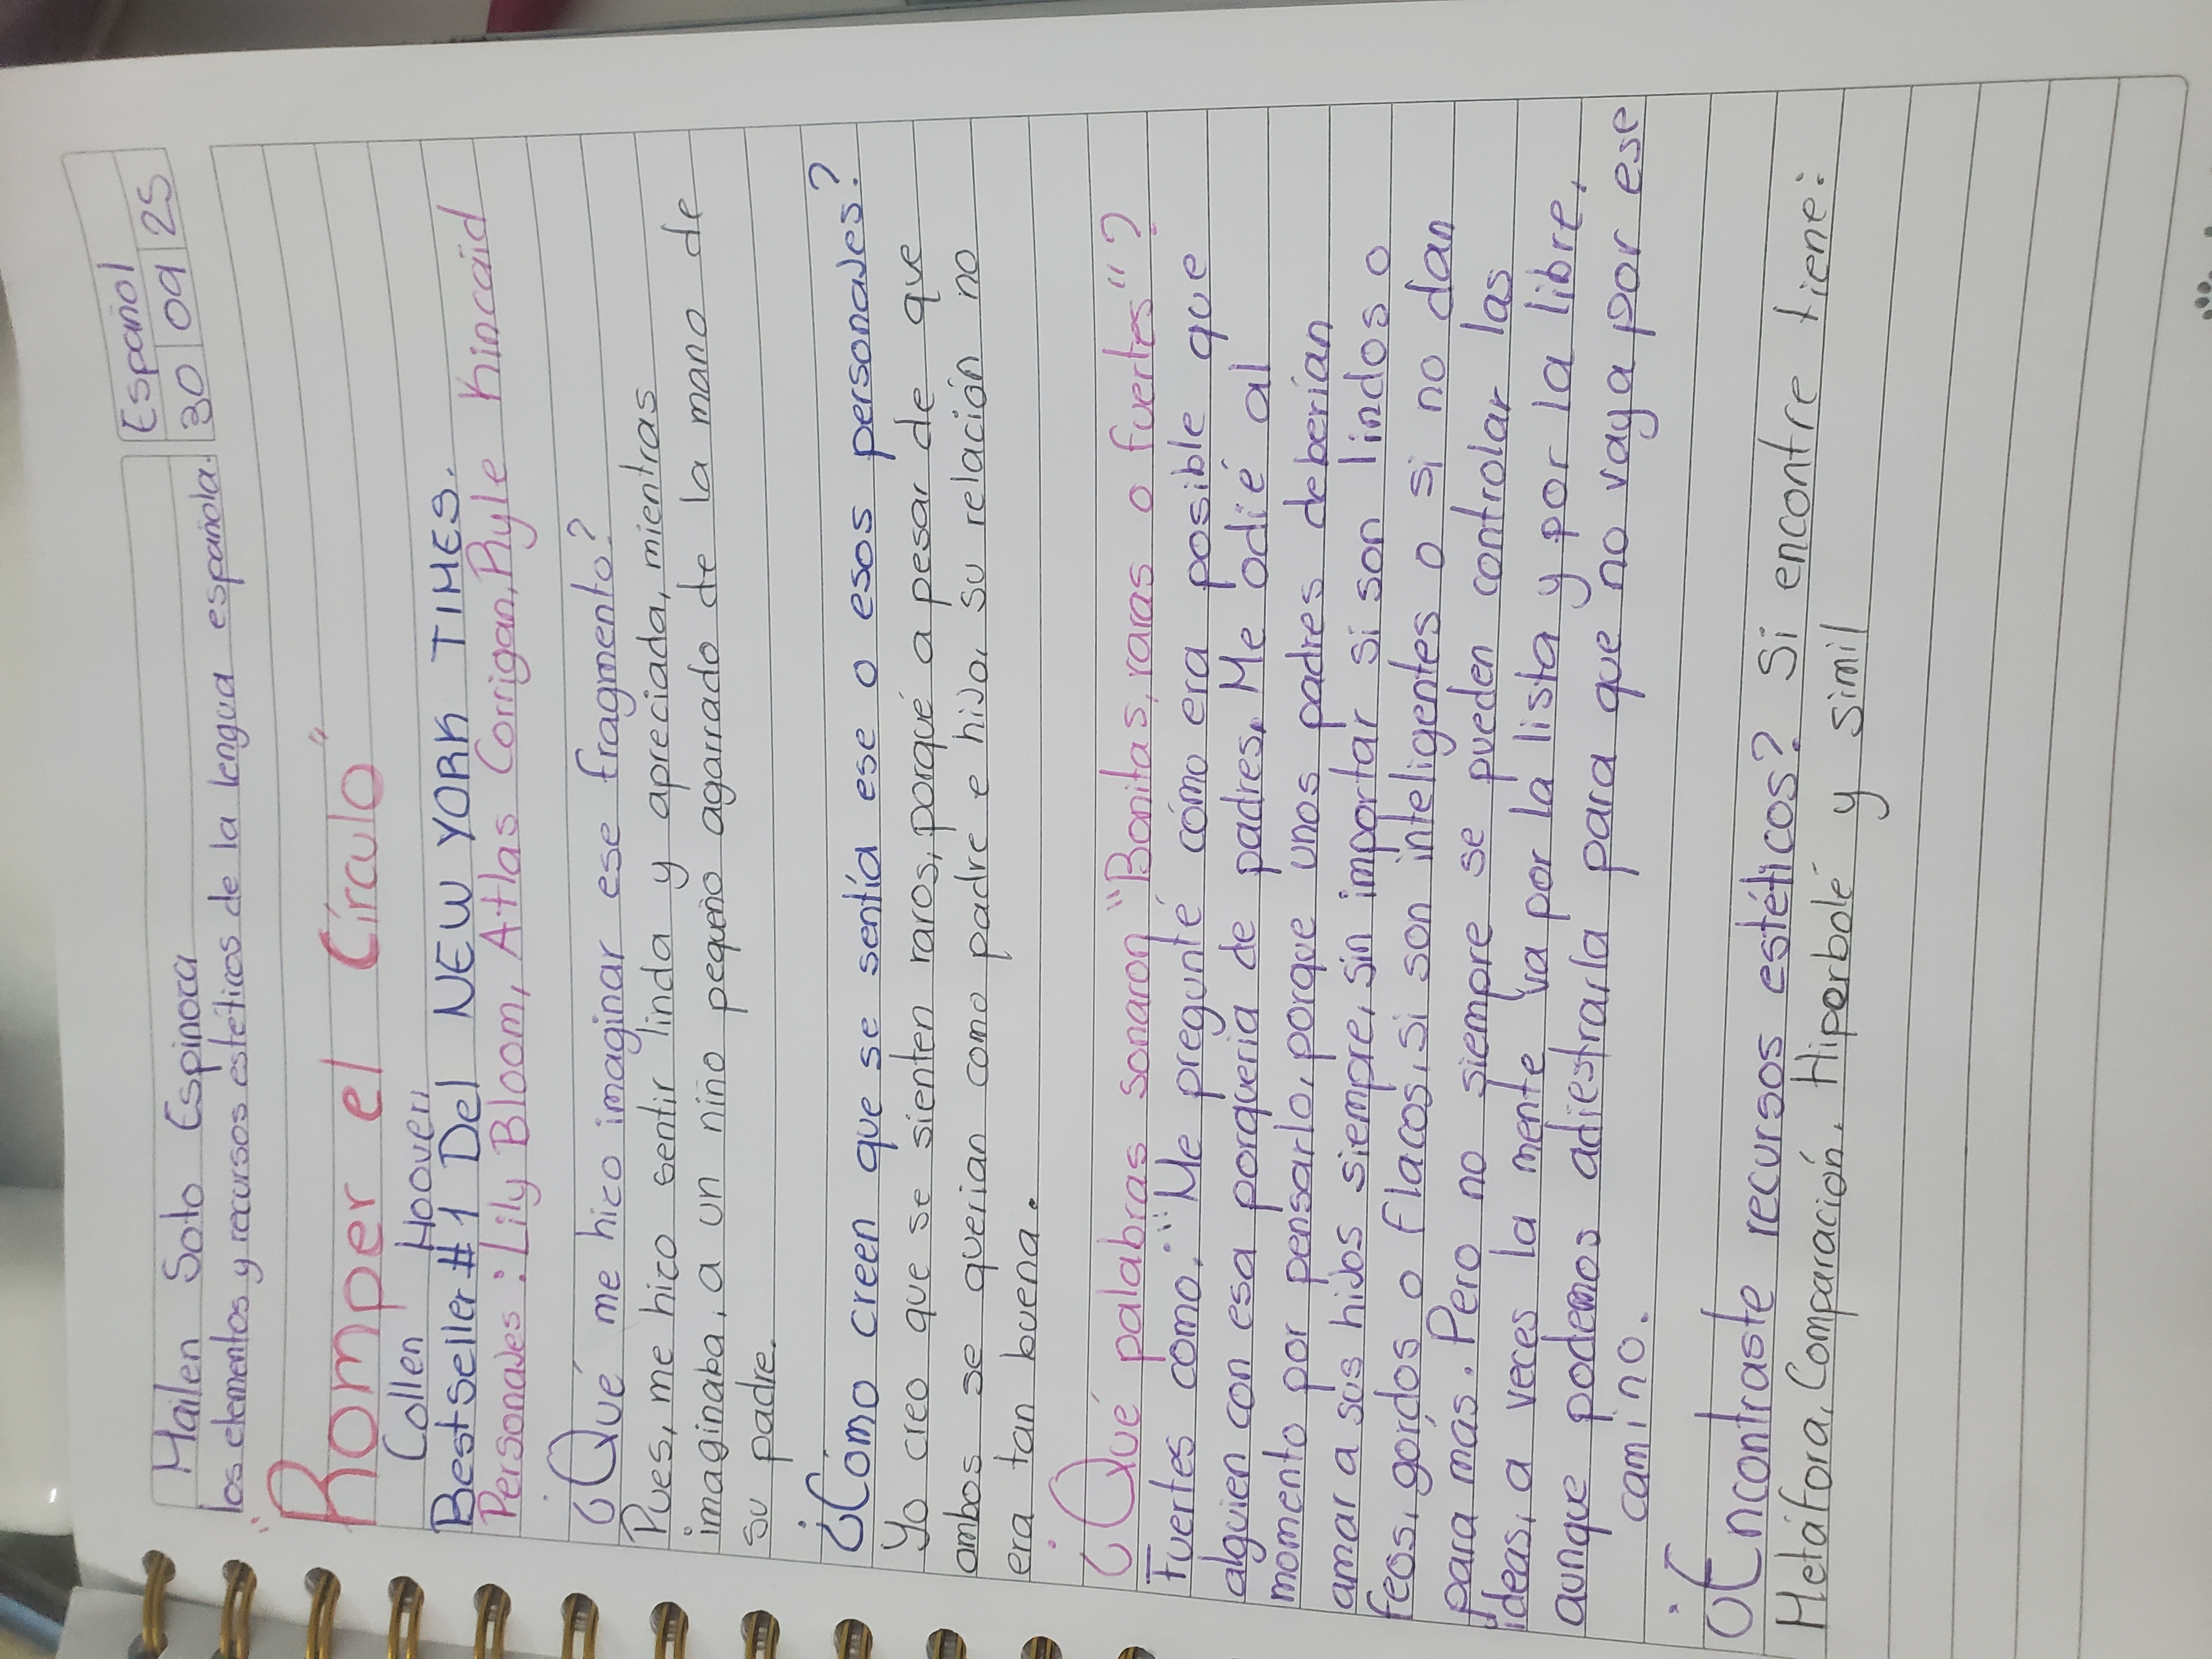 Mailen Soto Espinoza
Español
los elementos y recursos estéticos de la lengua española.
30 09 25
"Romper el Círculo"
Collen Hoover
Bestseller #1 Del NEW YORK TIMES.
Personajes: Lily Bloom, Atlas Corrigan, Ryle Kincaid
¿Qué me hizo imaginar ese fragmento?
Pues, me hizo sentir linda y apreciada, mientras
imaginaba, a un niño pequeño agarrado de la mano de
su padre.
¿Cómo creen que se sentía ese o esos personajes?
Yo creo que se sienten raros, porqué a pesar de que
ambos se querian como padre e hijo, su relación no
era tan buena.
¿Qué palabras sonaron "Bonitas, raras o fuertes"?
Fuertes como: "Me pregunté cómo era posible que
alguien con esa porqueria de padres, Me odié al
momento por pensarlo, porque unos padres deberían
amar a sus hijos siempre, sin importar si son lindos o
feos, gordos o flacos, si son inteligentes o si no dan
para más. Pero no siempre se pueden controlar las
ideas, a veces la mente va por la lista y por la libre,
aunque podemos adiestrarla para que no vaya por ese
camino.
¿Encontraste recursos estéticos? Si encontre tiene:
Metáfora, Comparación, Hiporbolé y Simil